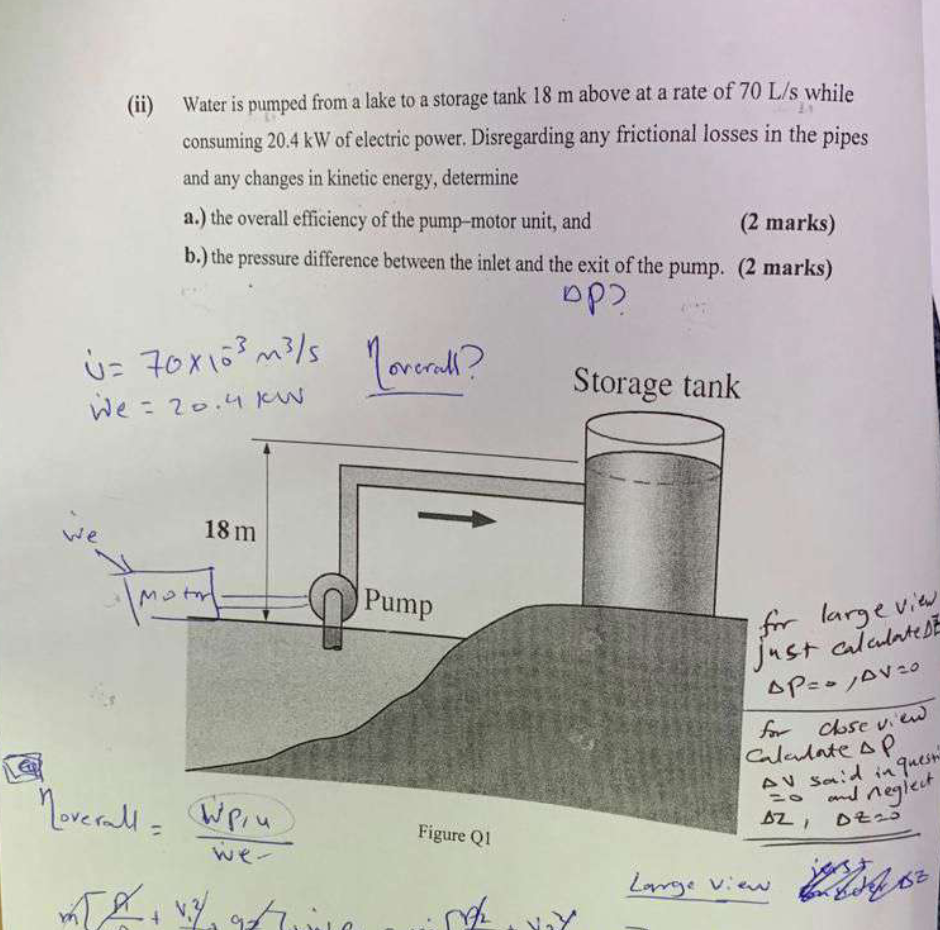 (ii) Water is pumped from a lake to a storage tank 18 m above at a rate of 70 L/s while
consuming 20.4 kW of electric power. Disregarding any frictional losses in the pipes
and any changes in kinetic energy, determine
a.) the overall efficiency of the pump–motor unit, and (2 marks)
b.) the pressure difference between the inlet and the exit of the pump. (2 marks)
ΔP?
v̇ = 70×10⁻³ m³/s η overall?
ẇe = 20.4 kW
Storage tank
18 m
ẇe
Motor
Pump
for large view
just calculate ΔZ
ΔP=0, ΔV=0
for close view
Calculate ΔP
ΔV said in questi
=0 and neglect
ΔZ, ΔZ=0
η overall = Ẇp,u
ẇe
Figure Q1
Large view
ΔZ